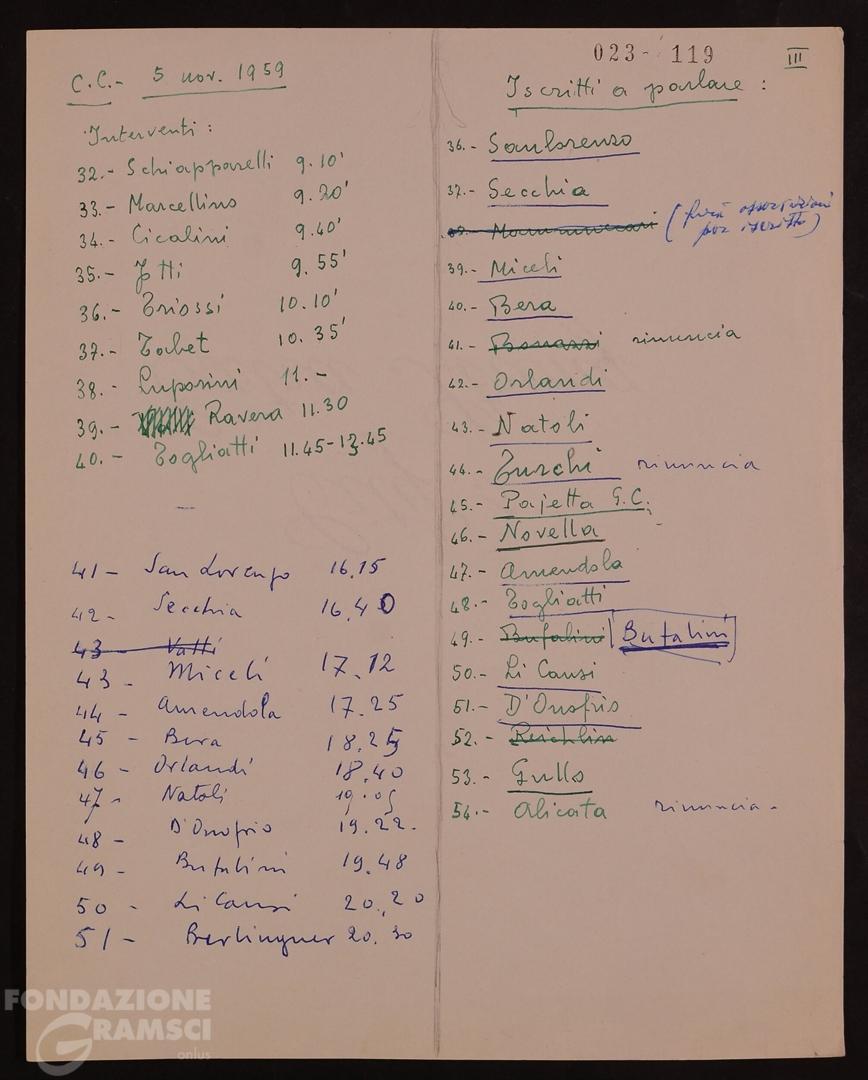 023- 119
III
C.C.- 5 nov. 1959
Interventi :
32.- Schiapparelli 9.10'
33.- Marcellino 9.20'
34.- Cicalini 9.40'
35.- Jotti 9.55'
36.- Triossi 10.10'
37.- Tabet 10.35'
38.- Luporini 11.-
39.- Ravera 11.30
40.- Togliatti 11.45-13.45
—
41- San Lorenzo 16.15
42- Secchia 16.40
43- Vatti
43- Miceli 17.12
44- Amendola 17.25
45- Bera 18.25
46- Orlandi 18.40
47- Natoli 19.05
48- D'Onofrio 19.22.
49- Bufalini 19.48
50- Li Causi 20.20
51- Berlinguer 20.30
Iscritti a parlare :
36.- Sanlorenzo
37.- Secchia
Mammucari (farà osservazioni
per iscritto)
39.- Miceli
40.- Bera
41.- Bonazzi rinuncia
42.- Orlandi
43.- Natoli
44.- Turchi rinuncia
45.- Pajetta G.C.
46.- Novella
47.- Amendola
48.- Togliatti
49.- Bufalini Bufalini
50.- Li Causi
51.- D'Onofrio
52.- Reichlin
53.- Gullo
54.- Alicata rinuncia-
FONDAZIONE
GRAMSCI
onlus